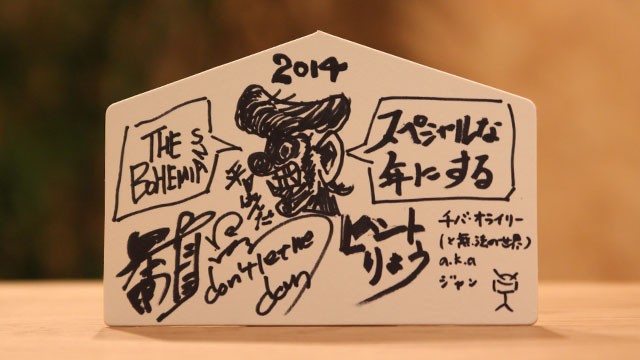 2014
THE
BOHEMIANS
スペシャルな
年にする
平田ぱんだ
don't let me
down
ビート
りょう
チバ・オライリー
(と無法の世界)
a.k.a
ジャン